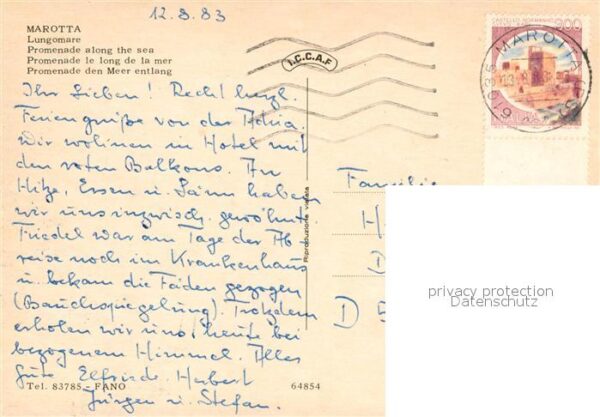 12.8.83
MAROTTA
Lungomare
Promenade along the sea
Promenade le long de la mer
Promenade den Meer entlang
I.C.C.A.F
900
61035 MAROTTA
Ihr Lieben! Recht herzl.
Feriengrüße von der Adria.
Wir wohnen in Hotel mit
den roten Balkons. An
Hitze, Essen u. Lärm haben
wir uns inzwisch. gewöhnt.
Friedel war am Tage der Ab
reise noch im Krankenhaus
u. bekam die Fäden gezogen
(Bauchspiegelung). Trotzdem
erholen wir uns, heute bei
bezogenem Himmel. Alles
Gute Elfriede, Herbert
Jürgen u. Stefan.
Tel. 83785 - FANO
64854
Riproduzione vietata
Familie
H
D
D 5
privacy protection
Datenschutz